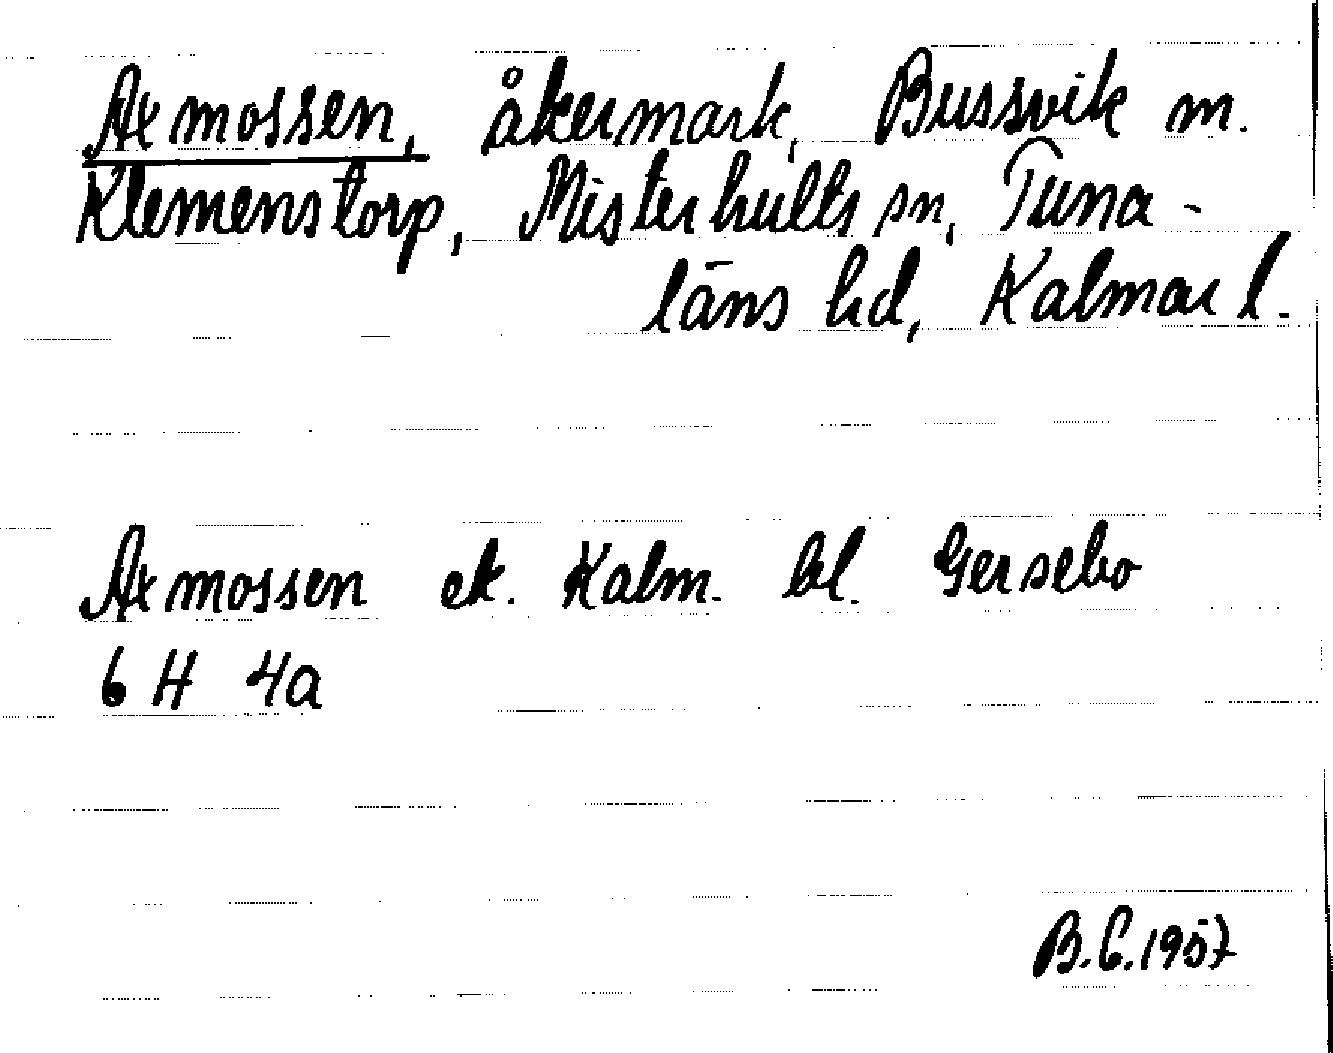 Axmossen, åkermark, Bussvik m.
Klemenstorp, Misterhults sn, Tuna-
läns hd, Kalmar l.
Axmossen ek. Kalm. bl. Gersebo
6 H 4a
B.E.1957